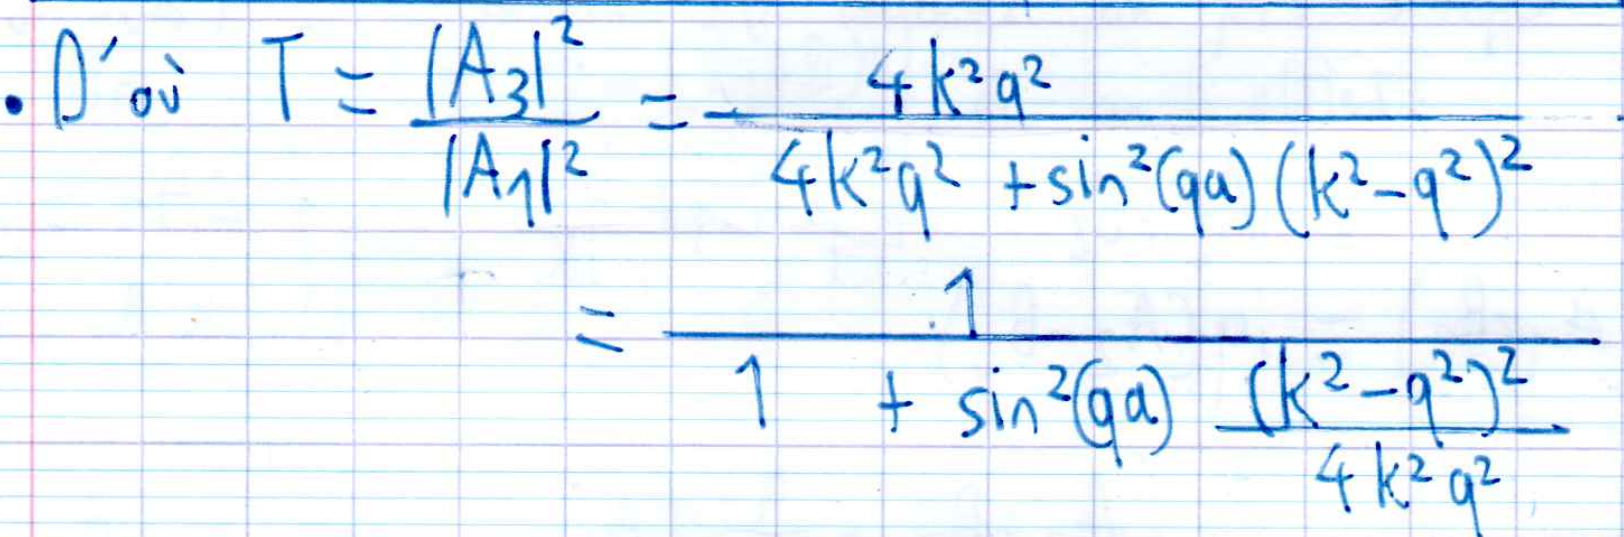 • D'où T = |A₃|² / |A₁|² = 4k²q² / (4k²q² + sin²(qa)(k²-q²)²)
= 1 / (1 + sin²(qa) (k²-q²)² / 4k²q²)